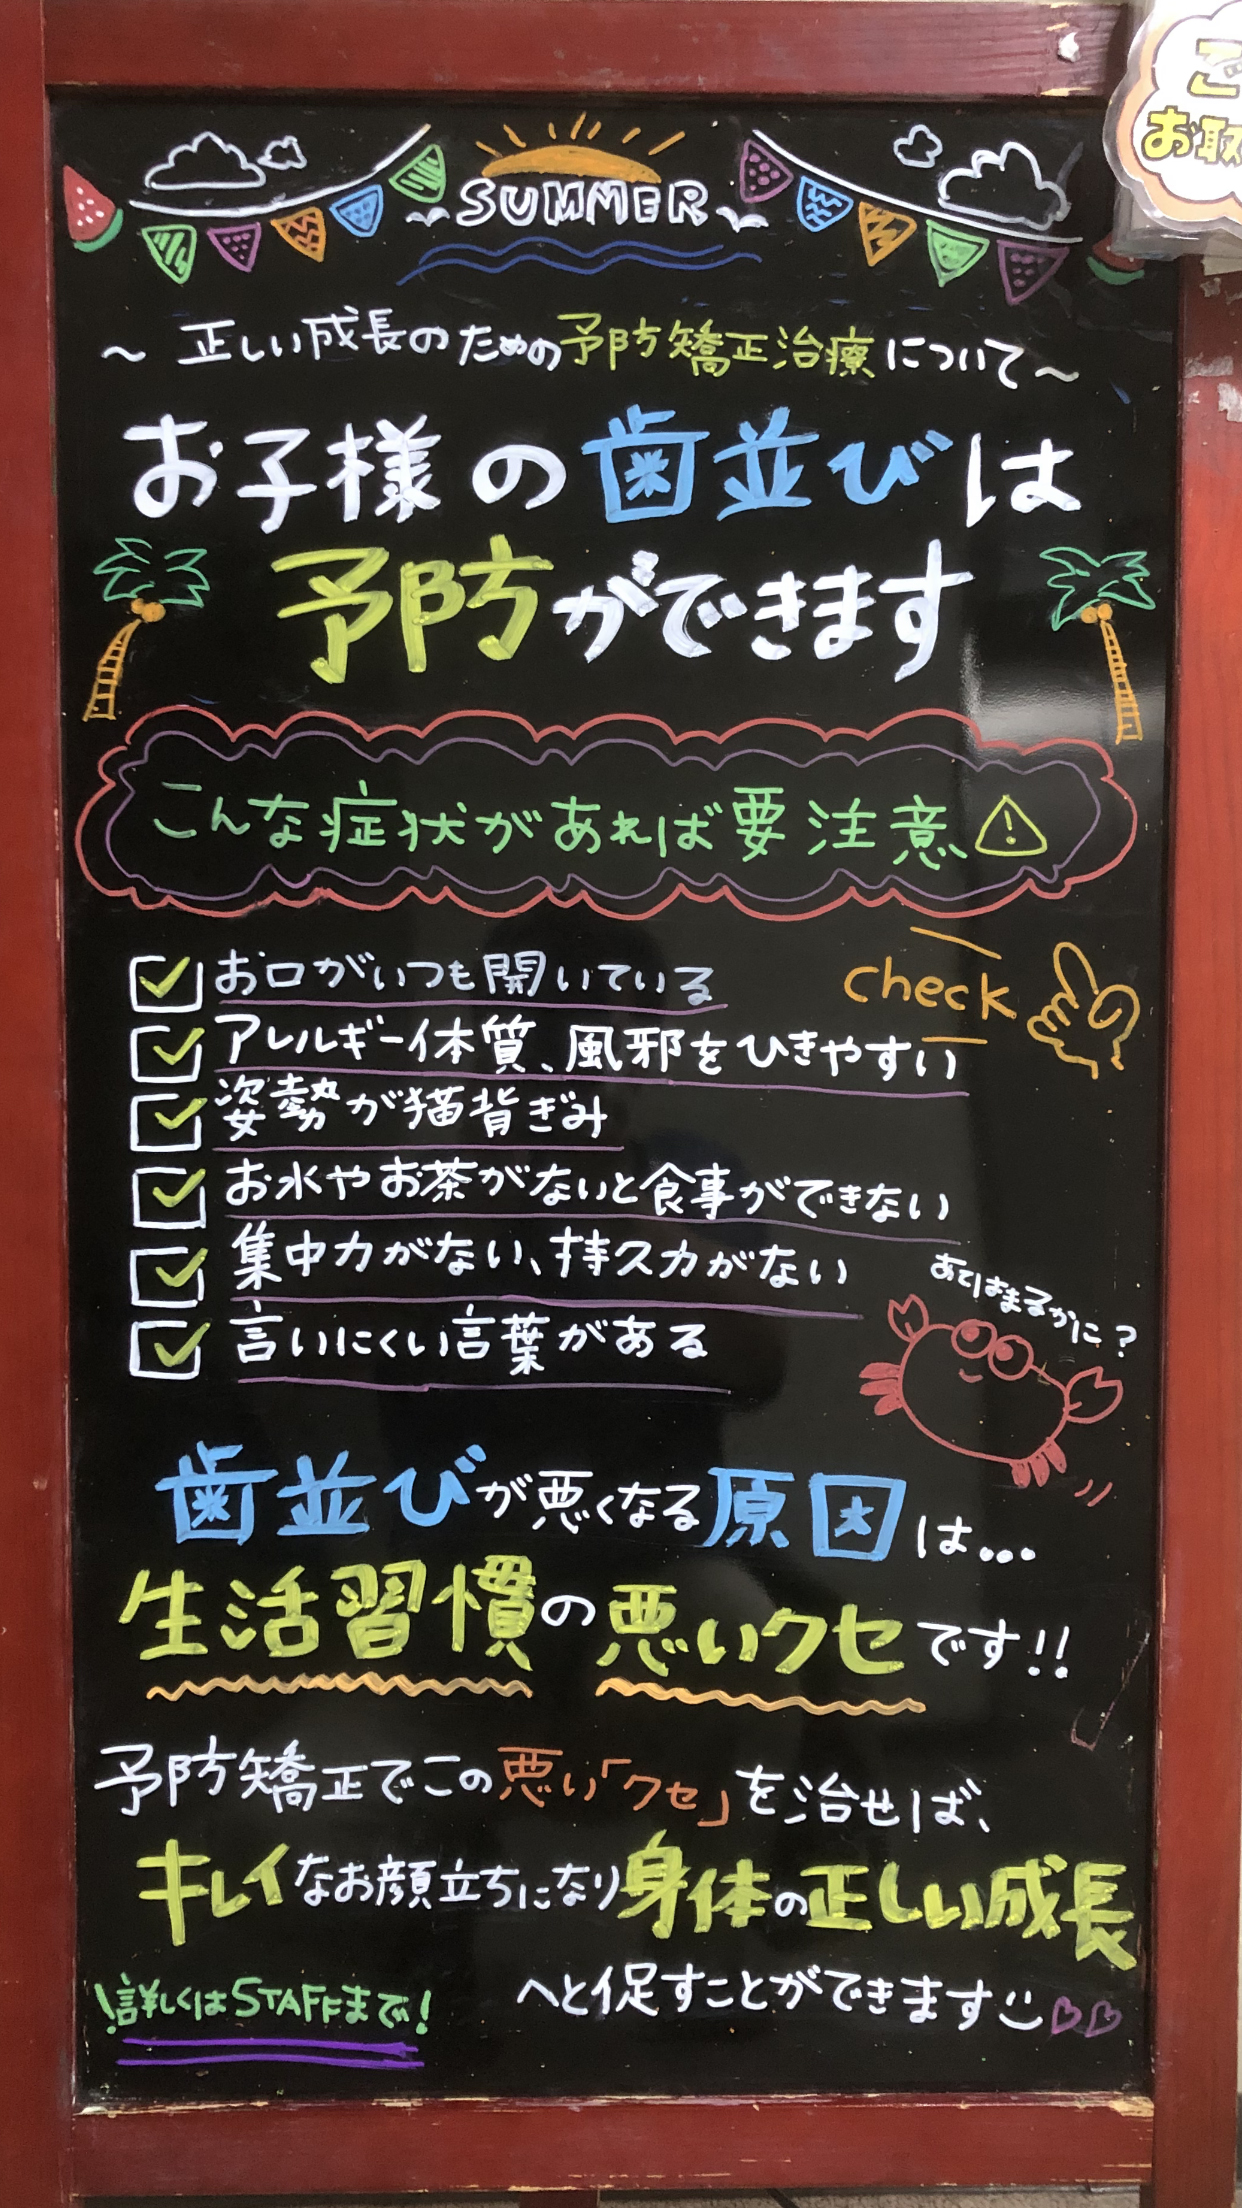 SUMMER
ご
お取
～正しい成長のための予防矯正治療について～
お子様の歯並びは
予防ができます
こんな症状があれば要注意
check
お口がいつも開いている
アレルギー体質、風邪をひきやすい
姿勢が猫背ぎみ
お水やお茶がないと食事ができない
集中力がない、持久力がない
言いにくい言葉がある
あてはまるかに？
歯並びが悪くなる原因は...
生活習慣の悪いクセです!!
予防矯正でこの悪い「クセ」を治せば、
キレイなお顔立ちになり身体の正しい成長
へと促すことができます
詳しくはSTAFFまで!